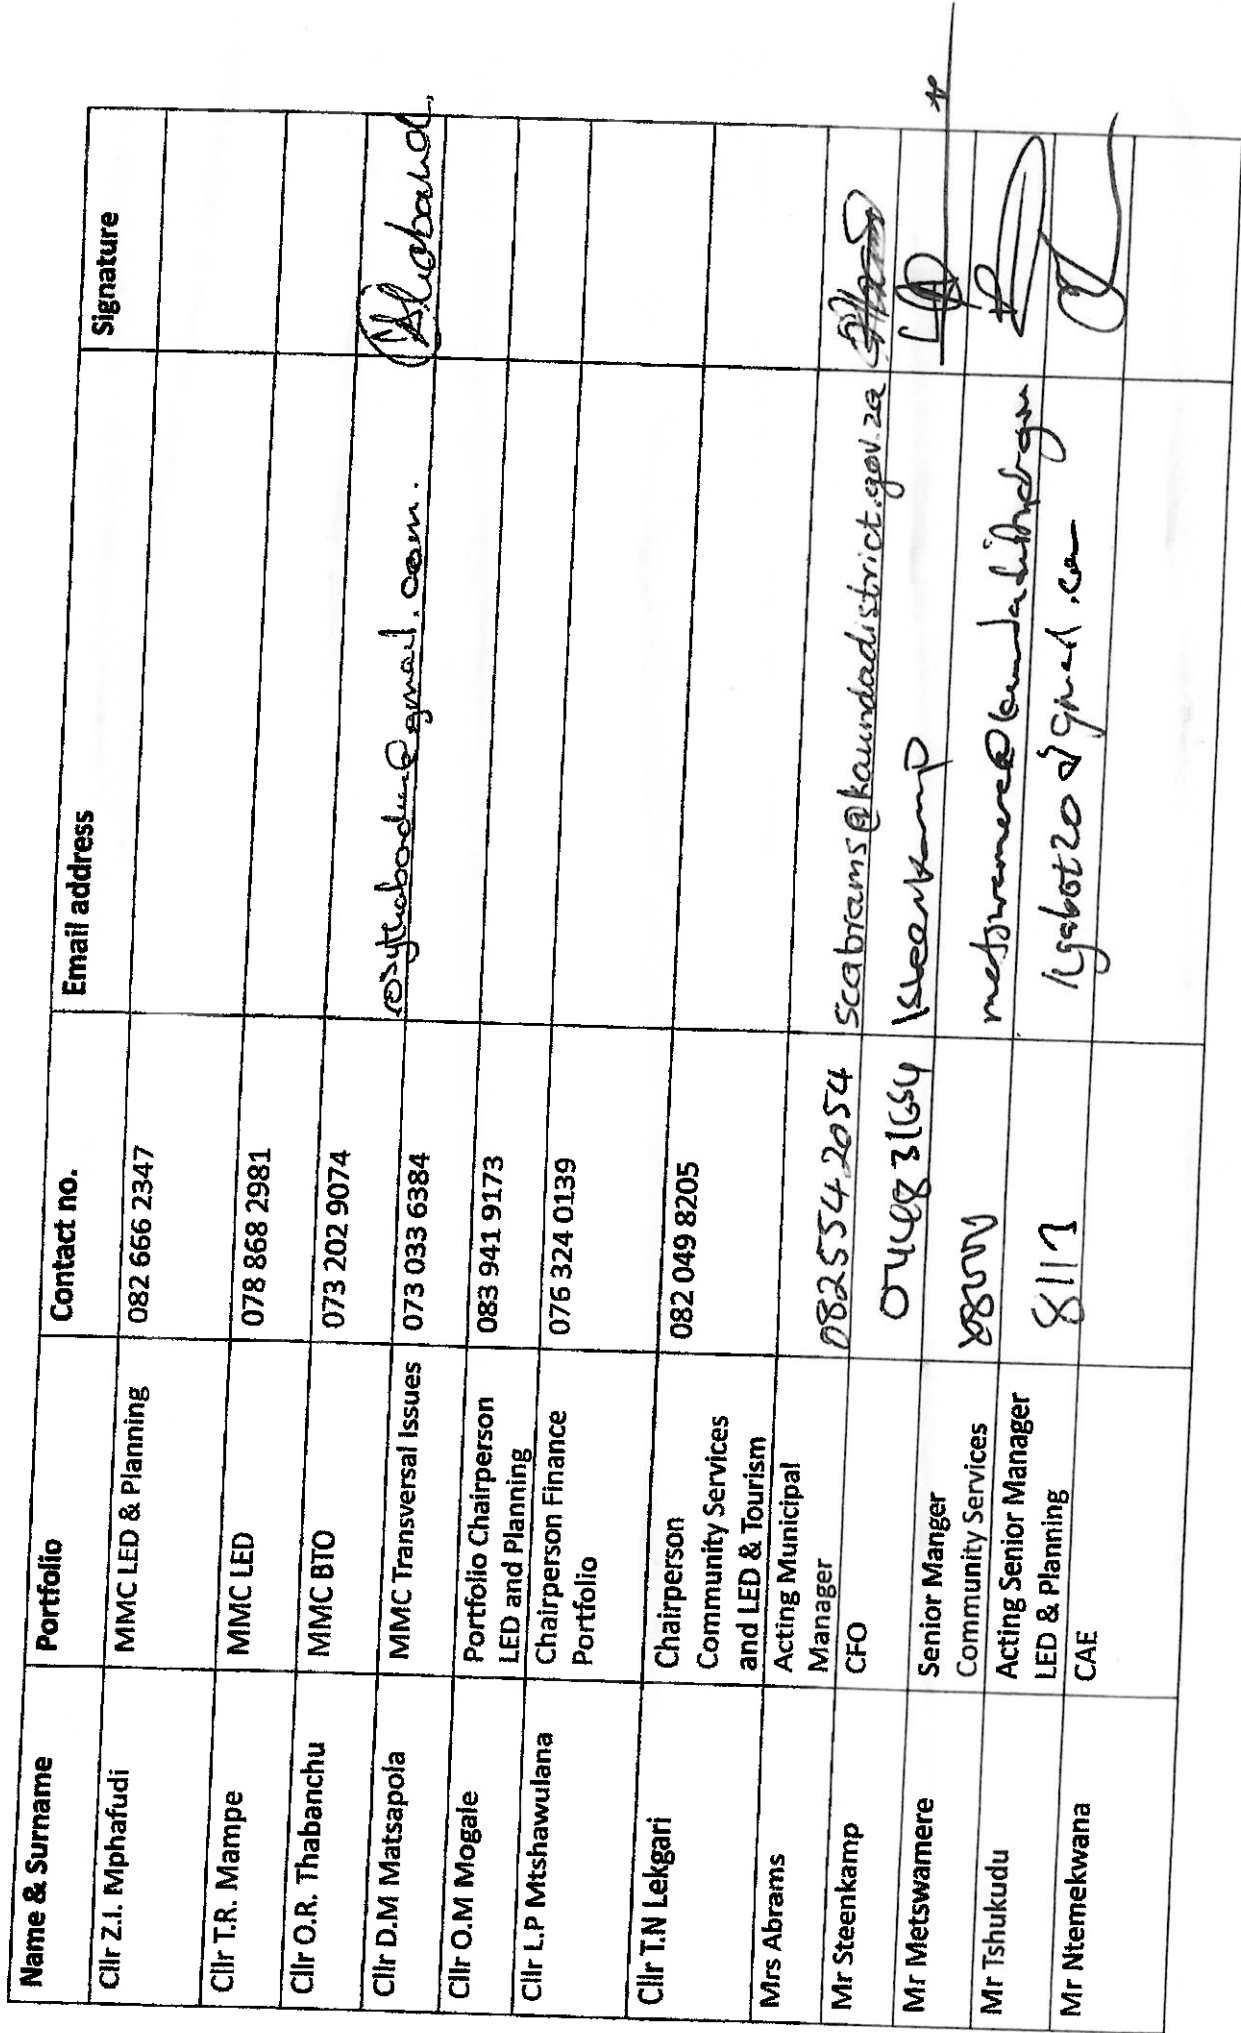 Name & Surname Portfolio Contact no. Email address Signature
Cllr Z.I. Mphafudi MMC LED & Planning 082 666 2347
Cllr T.R. Mampe MMC LED 078 868 2981
Cllr O.R. Thabanchu MMC BTO 073 202 9074
Cllr D.M Matsapola MMC Transversal Issues 073 033 6384
Cllr O.M Mogale Portfolio Chairperson 083 941 9173
LED and Planning
Cllr L.P Mtshawulana Chairperson Finance 076 324 0139
Portfolio
Cllr T.N Lekgari Chairperson 082 049 8205
Community Services
and LED & Tourism
Mrs Abrams Acting Municipal
Manager 0825542054 scabrams@kaundadistrict.gov.za
Mr Steenkamp CFO ksteenkamp
Mr Metswamere Senior Manger
Community Services
Mr Tshukudu Acting Senior Manager
LED & Planning
Mr Ntemekwana CAE